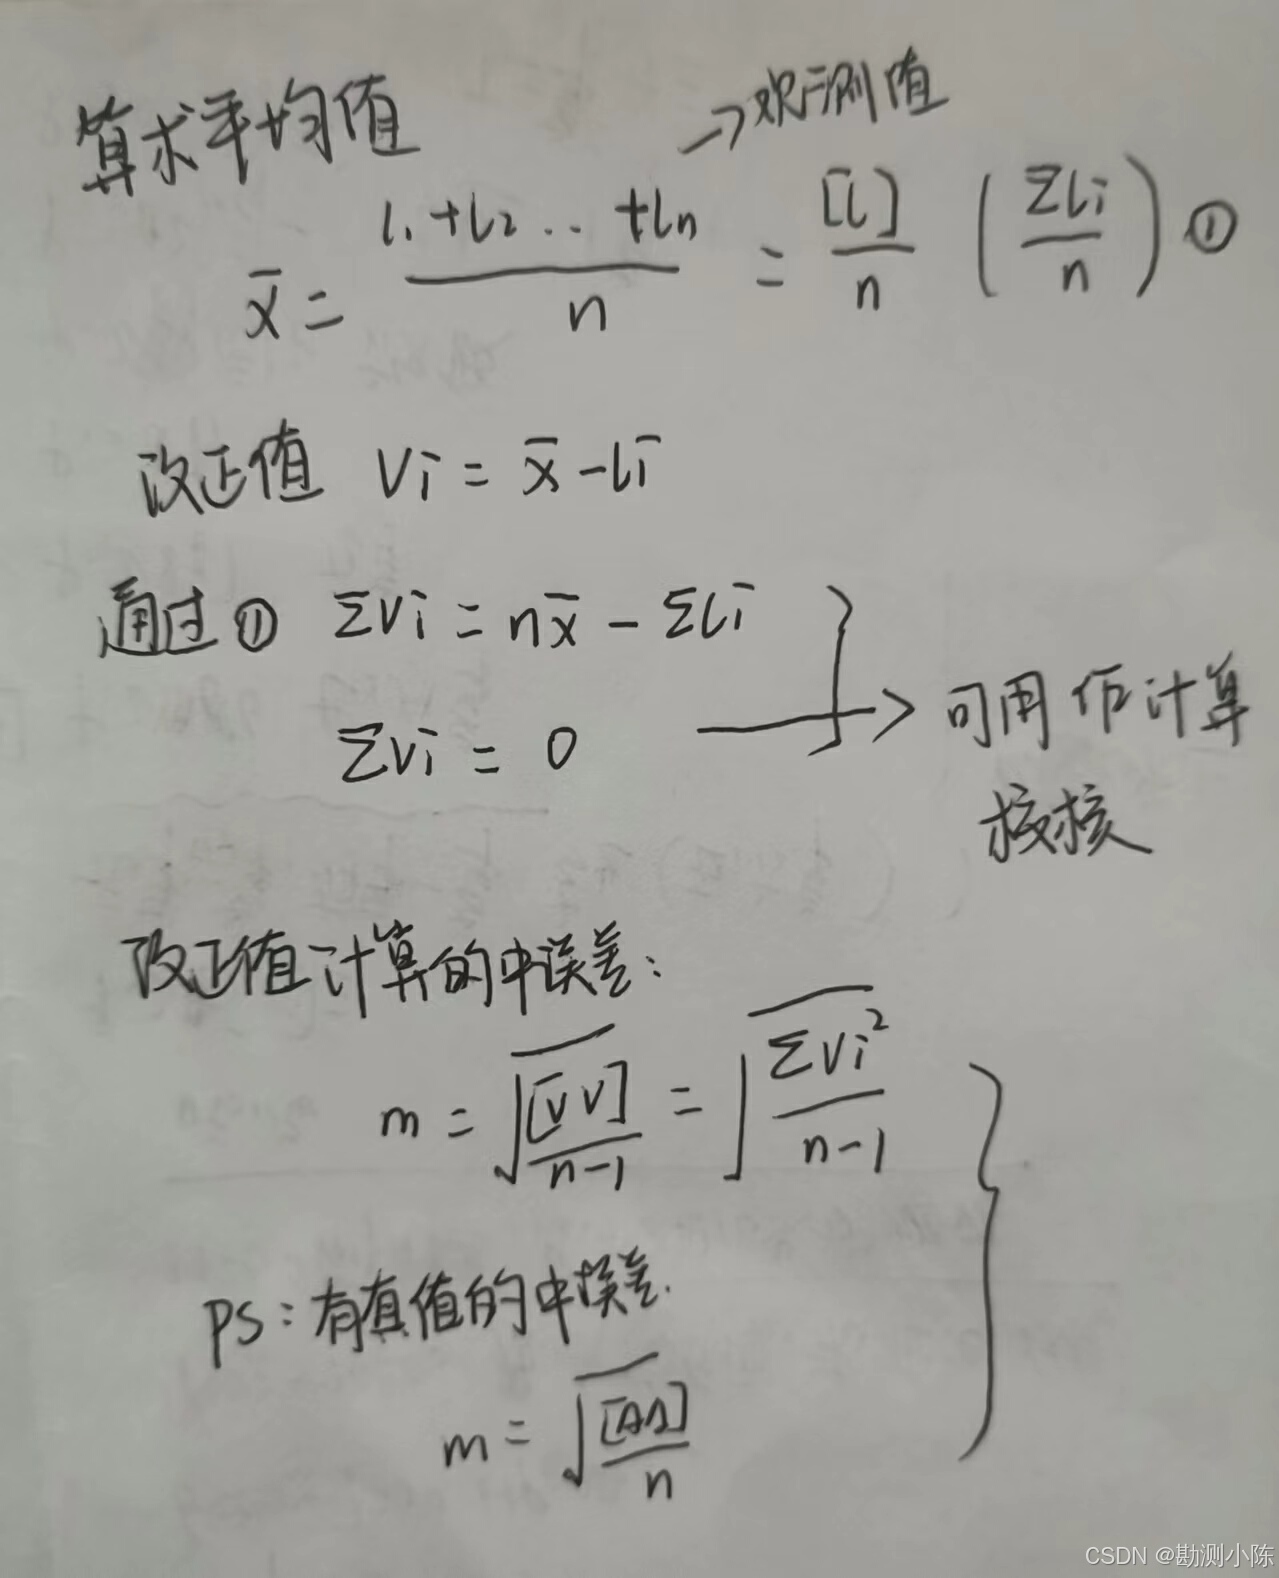 算术平均值
→观测值
x̄ = (l₁+l₂...+lₙ)/n = [l]/n (Σli/n) ①
改正值 Vi = x̄ - li
通过① ΣVi = nx̄ - Σli
ΣVi = 0 → 可用作计算
校核
改正值计算的中误差:
m = √([VV]/(n-1)) = √(ΣVi²/(n-1))
PS: 有真值的中误差.
m = √([ΔΔ]/n)
CSDN @勘测小陈